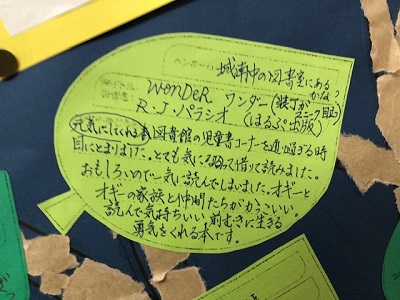 城南中の図書室にあるかな?
wonDeR ワンダー(装丁がユニーク 目立)
R・J・パラシオ (ほるぷ出版)
元気にしてくれる本 図書館の児童書コーナーを通り過ぎる時
目にとまりました。とても気になって借りて読みました。
おもしろいので一気に読んでしまいました。オギーと
オギーの家族と仲間たちがかっこいい。
読んで気持ちいい 前むきに生きる
勇気をくれる本です。